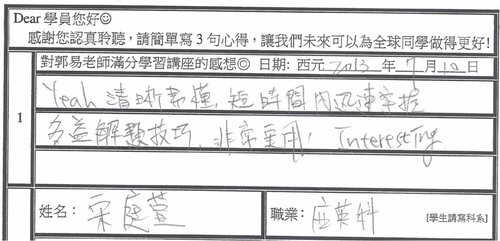 Dear 學員您好☺
感謝您認真聆聽，請簡單寫 3 句心得，讓我們未來可以為全球同學做得更好!
對郭易老師滿分學習講座的感想◎ 日期: 西元 2013 年 7 月 10 日
Yeah 清晰易懂，短時間內迅速掌握
1
各並解題技巧，非常實用! Interesting
姓名: 宋庭萱 職業: 應英科 [學生請寫科系]